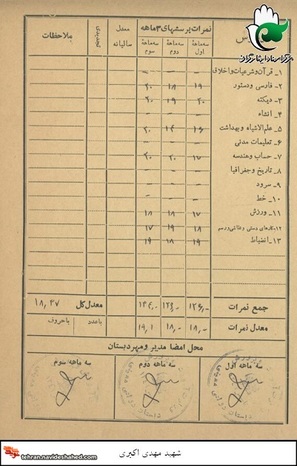 مرکز اسناد ایثارگران
نمرات پرسشهای ۳ ماهه
معدل سالیانه
تجدیدی
ملاحظات
سه ماهه اول
سه ماهه دوم
سه ماهه سوم
۱ - قرآن و شرعیات و اخلاق — — —
۲ - فارسی و دستور ۱۹ ۱۸ ۲۰
۳ - دیکته ۲۰ ۱۹ ۲۰
۴ - انشاء — — —
۵ - علم‌الاشیاء و بهداشت ۱۶
۶ - تعلیمات مدنی — — —
۷ - حساب و هندسه ۱۷ ۲۰ ۲۰
۸ - تاریخ و جغرافیا — — —
۹ - سرود — — —
۱۰ - خط — — —
۱۱ - ورزش ۱۷ ۱۸ ۱۸
۱۲ - کارهای دستی و نقاشی و رسم ۱۷ ۱۹ ۱۸
۱۳ - انضباط ۱۹ ۱۸ ۱۹
جمع نمرات ۱۲۶/۰ معدل کل ۱۸/۳۷
معدل نمرات ۱۸/۰ ۱۸/۰ ۱۹/۱ باعدد باحروف
محل امضا مدیر و مهر دبستان
سه ماهه اول
سه ماهه دوم
سه ماهه سوم
شهید مهدی اکبری
tehran.navideshahed.com